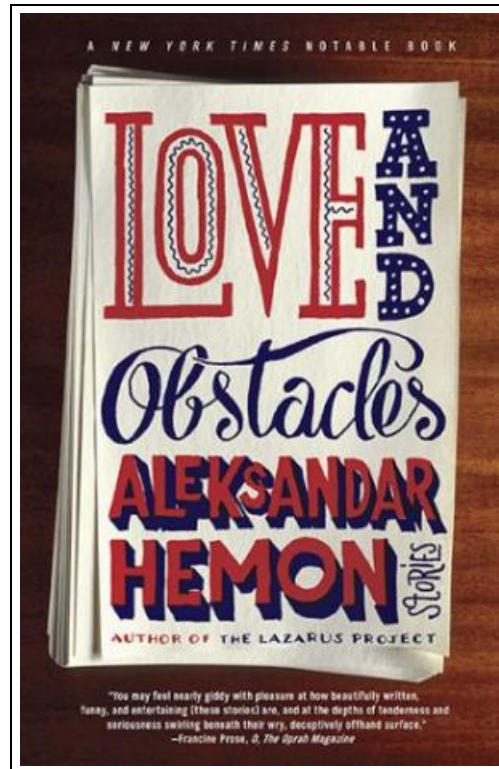 A NEW YORK TIMES NOTABLE BOOK
LOVE AND
Obstacles
ALEKSANDAR
HEMON
STORIES
AUTHOR OF THE LAZARUS PROJECT
"You may feel nearly giddy with pleasure at how beautifully written,
funny, and entertaining [these stories] are, and at the depths of tenderness and
seriousness swirling beneath their wry, deceptively offhand surface."
—Francine Prose, O, The Oprah Magazine